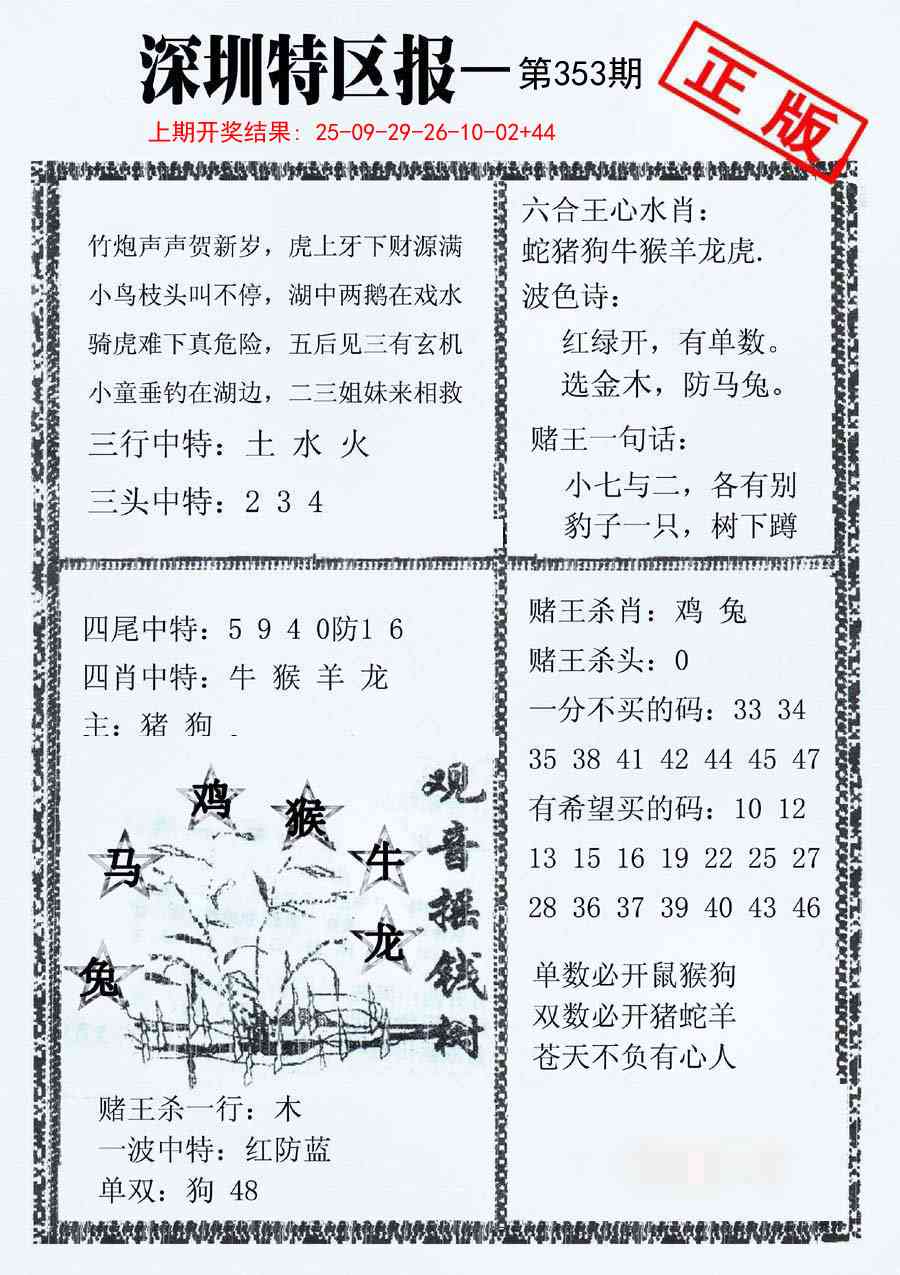 深圳特区报—第353期
正版
上期开奖结果: 25-09-29-26-10-02+44
竹炮声声贺新岁，虎上牙下财源满
小鸟枝头叫不停，湖中两鹅在戏水
骑虎难下真危险，五后见三有玄机
小童垂钓在湖边，二三姐妹来相救
三行中特：土 水 火
三头中特：2 3 4
六合王心水肖：
蛇猪狗牛猴羊龙虎.
波色诗：
红绿开，有单数。
选金木，防马兔。
赌王一句话：
小七与二，各有别
豹子一只，树下蹲
四尾中特：5 9 4 0防1 6
四肖中特：牛 猴 羊 龙
主：猪 狗 .
鸡
猴
马
牛
龙
兔
观音摇钱树
赌王杀一行：木
一波中特：红防蓝
单双：狗 48
赌王杀肖：鸡 兔
赌王杀头：0
一分不买的码：33 34
35 38 41 42 44 45 47
有希望买的码：10 12
13 15 16 19 22 25 27
28 36 37 39 40 43 46
单数必开鼠猴狗
双数必开猪蛇羊
苍天不负有心人